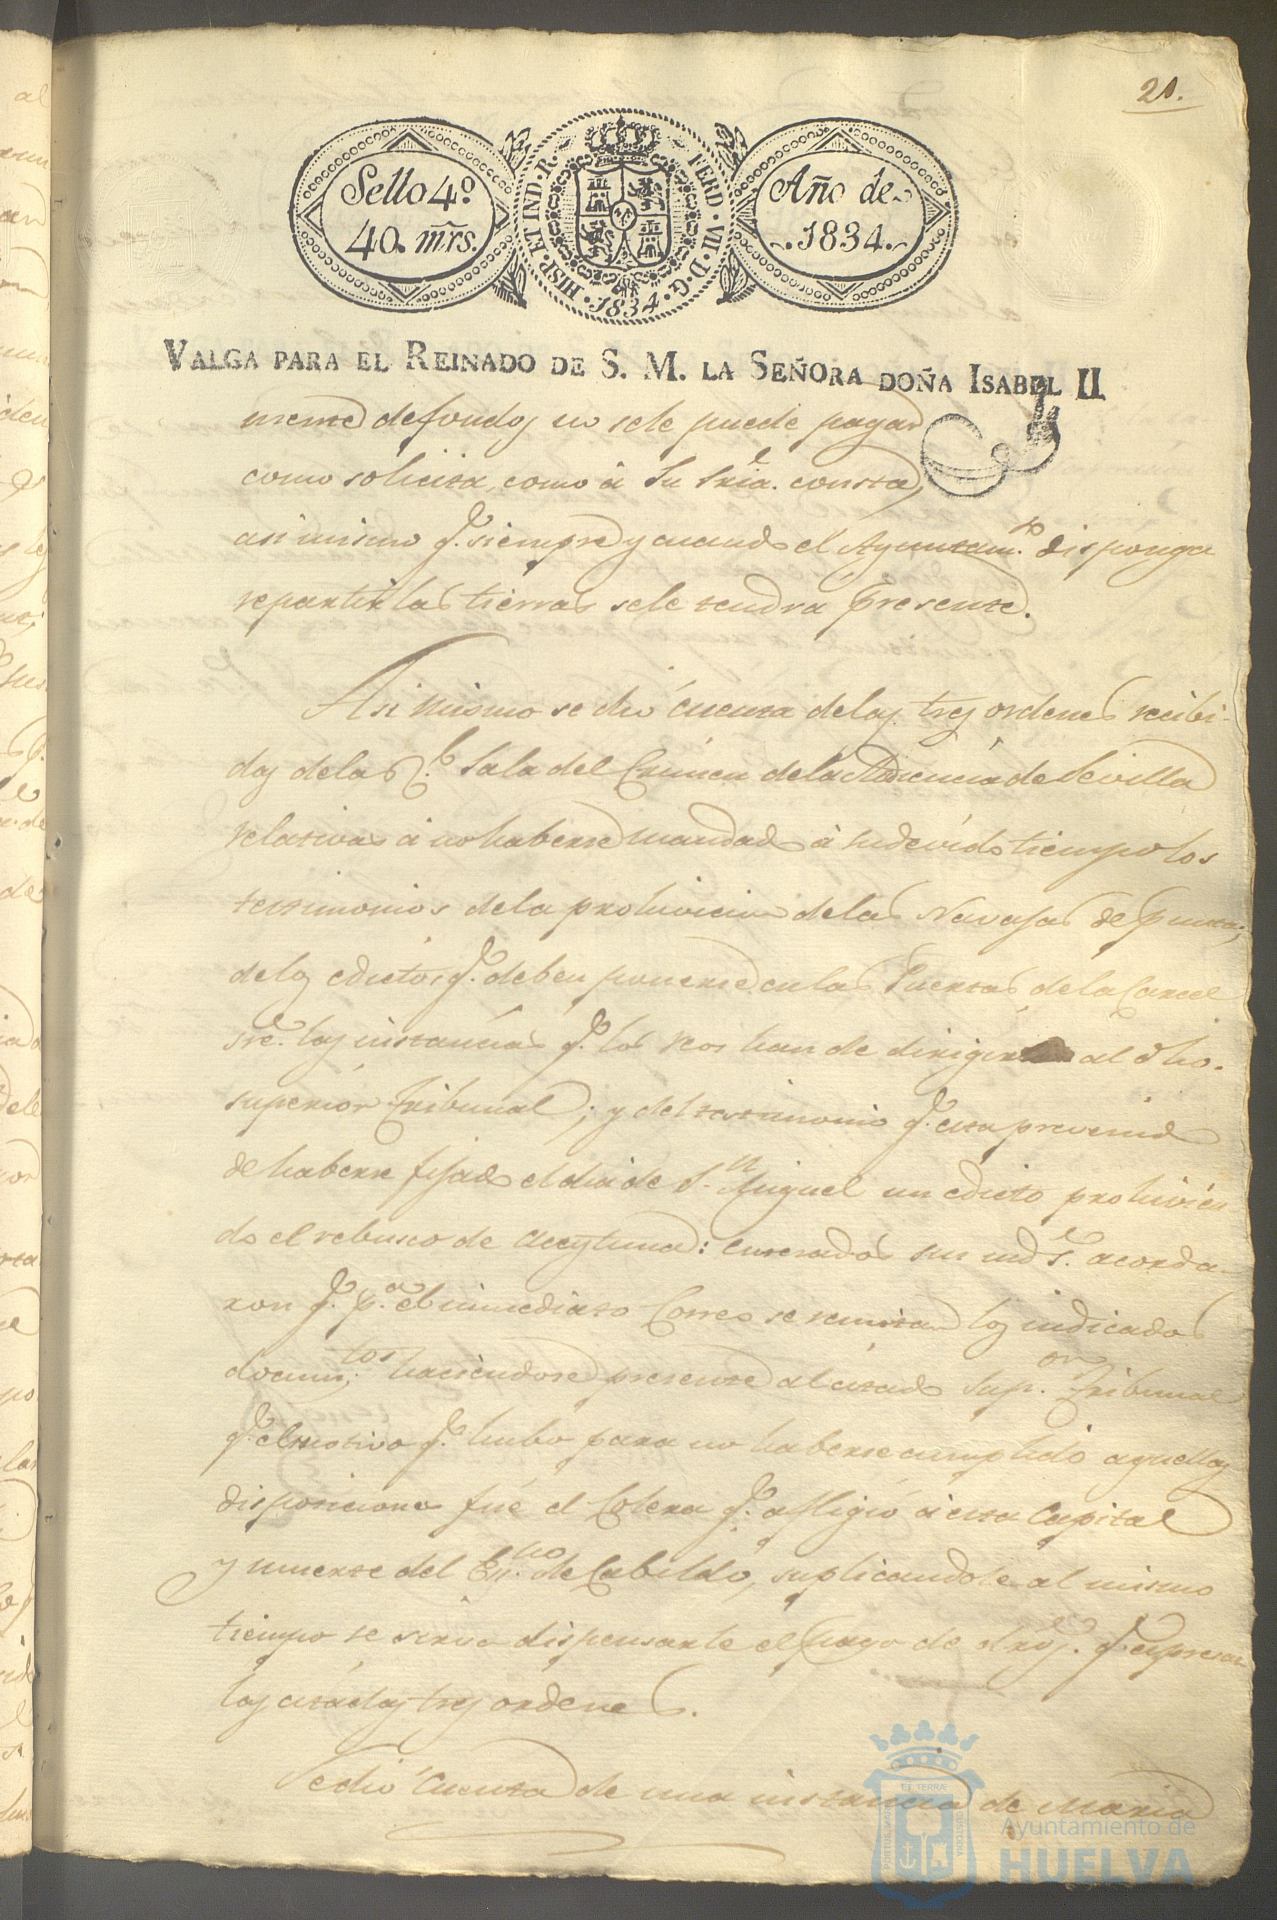 21.
Sello 4º
40. mrs.
HISP. ET IND. R. FERD. VII. D. G. 1834.
Año de
1834.
VALGA PARA EL REINADO DE S. M. LA SEÑORA DOÑA ISABEL II
mente de fondos no sele puede pagar
como solicita, como á Su Sria. consta,
asimismo q.e siempre y cuando el Ayuntam.to disponga
repartir las tierras sele tendra presente.
Asi mismo se dió cuenta delas tres ordenes recibi-
das dela R.l Sala del Crimen dela Audiencia de Sevilla
relativas á no haberse mandado á su devido tiempo los
testimonios dela prohivicion delas Navajas de punta;
delos edictos q.e deben ponerse en las Puertas dela Carcel
sre. las instancias q.e los reos han de dirigir al dho.
superior Tribunal; y del testimonio q.e esta prevenido
de haberse fijado el dia de S.n Miguel un edicto prohivien
do el rebusco de aceytuna: enterados sus mds.es acorda-
ron q.e p.a el inmediato Correo se remitan los indicados
docum.tos haciendose presente al citado Sup.or Tribunal
q.e el motivo q.e hubo para no haberse cumplido aquellas
disposiciones fué el Colera q.e afligió á esta Capital
y muerte del Es.no de Cabildo, suplicandole al mismo
tiempo se sirva dispensarle el pago de dros. q.e expresan
las citadas tres ordenes.
Se dió cuenta de una instancia de Maria
Ayuntamiento de
HUELVA